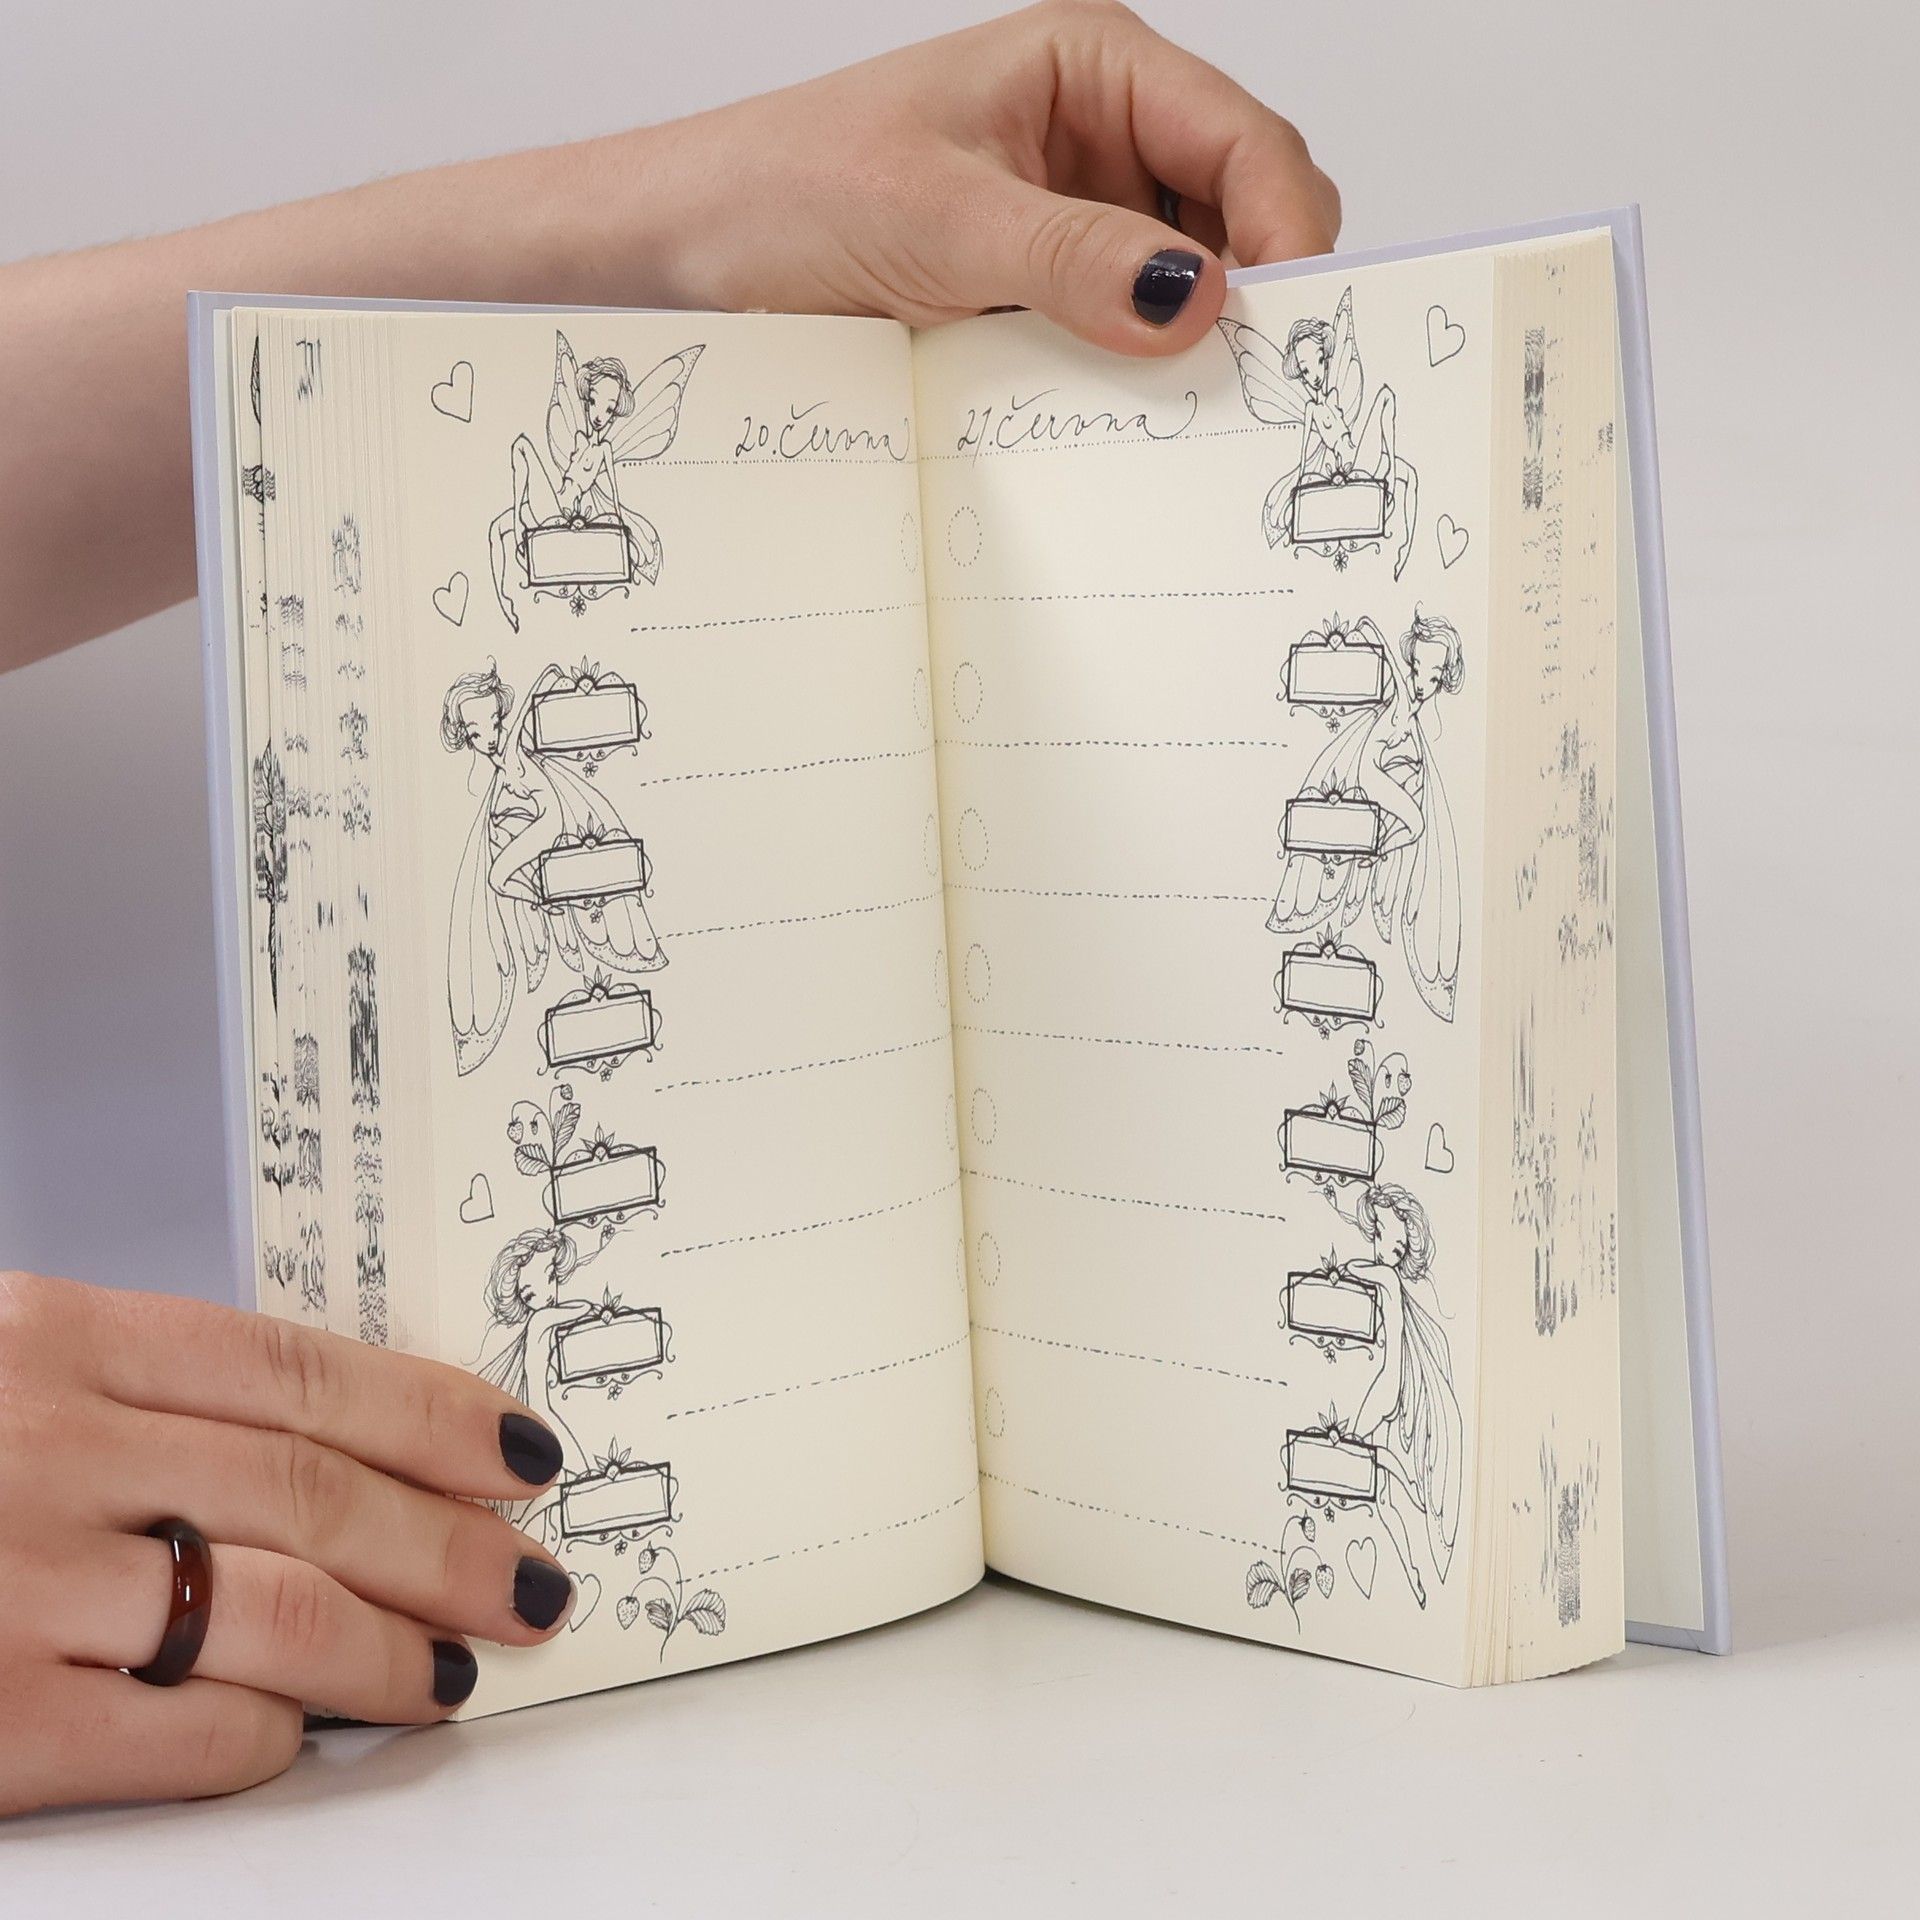 20. června
21. června